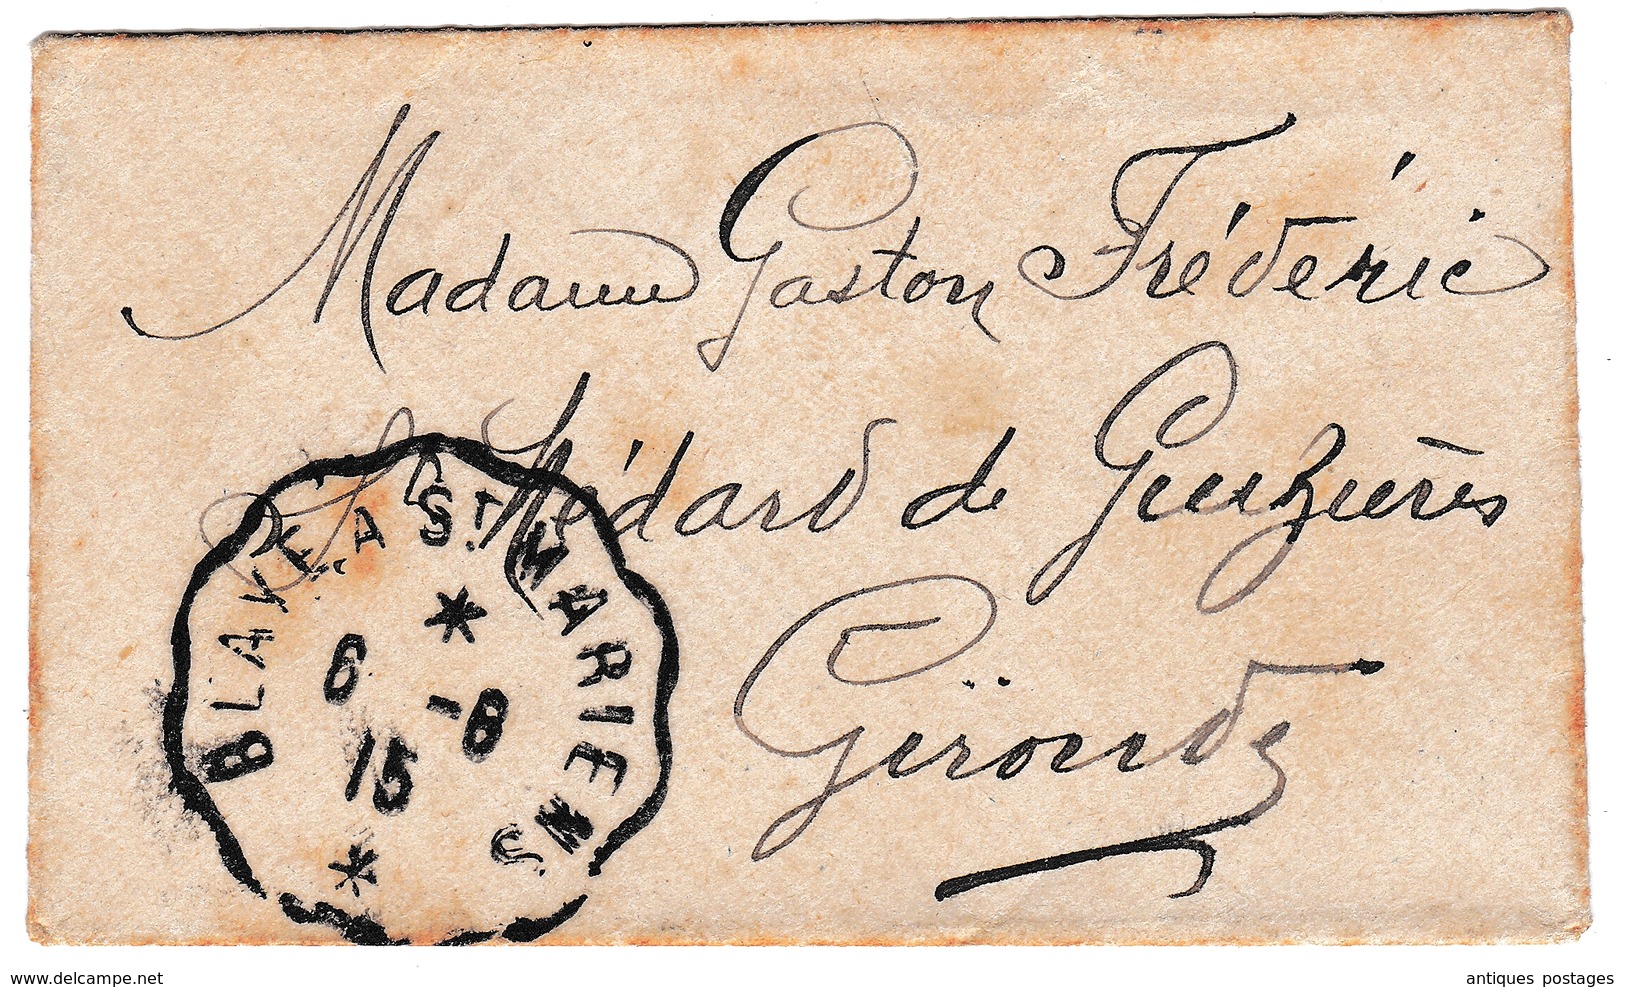 Madame Gaston Frédéric
St Médard de Guizières
Gironde
BLAYE A ST MARIENS
6 -8
15
www.delcampe.net
antiques postages